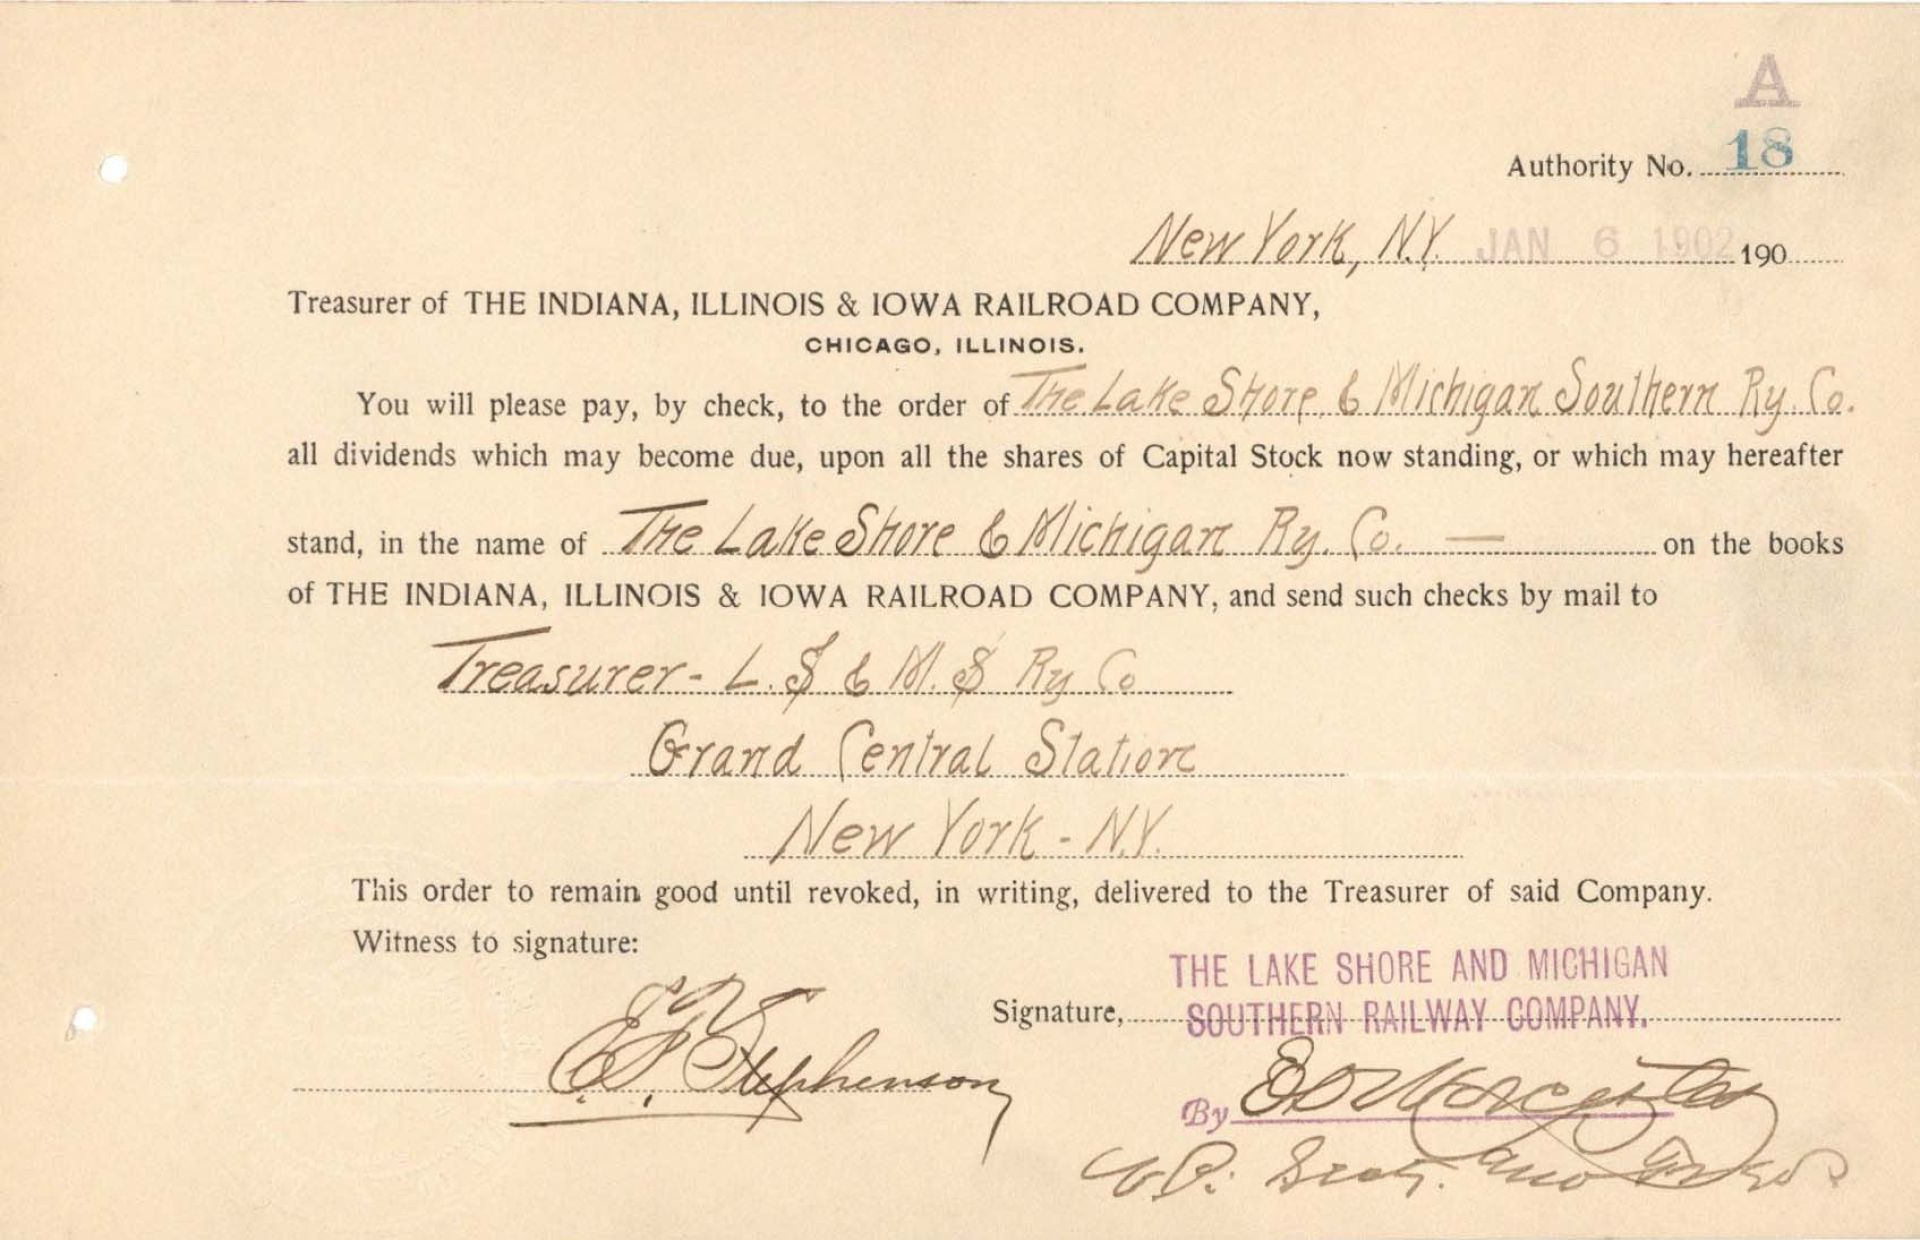 A
Authority No. 18
New York, N.Y. JAN 6 1902 190
Treasurer of THE INDIANA, ILLINOIS & IOWA RAILROAD COMPANY,
CHICAGO, ILLINOIS.
You will please pay, by check, to the order of The Lake Shore & Michigan Southern Ry. Co.
all dividends which may become due, upon all the shares of Capital Stock now standing, or which may hereafter
stand, in the name of The Lake Shore & Michigan Ry. Co. — on the books
of THE INDIANA, ILLINOIS & IOWA RAILROAD COMPANY, and send such checks by mail to
Treasurer - L. S & M. S Ry Co
Grand Central Station
New York - N.Y.
This order to remain good until revoked, in writing, delivered to the Treasurer of said Company.
Witness to signature:
THE LAKE SHORE AND MICHIGAN
Signature, SOUTHERN RAILWAY COMPANY.
Stephenson
By E D Worcester
V.P. Secy. and Treas